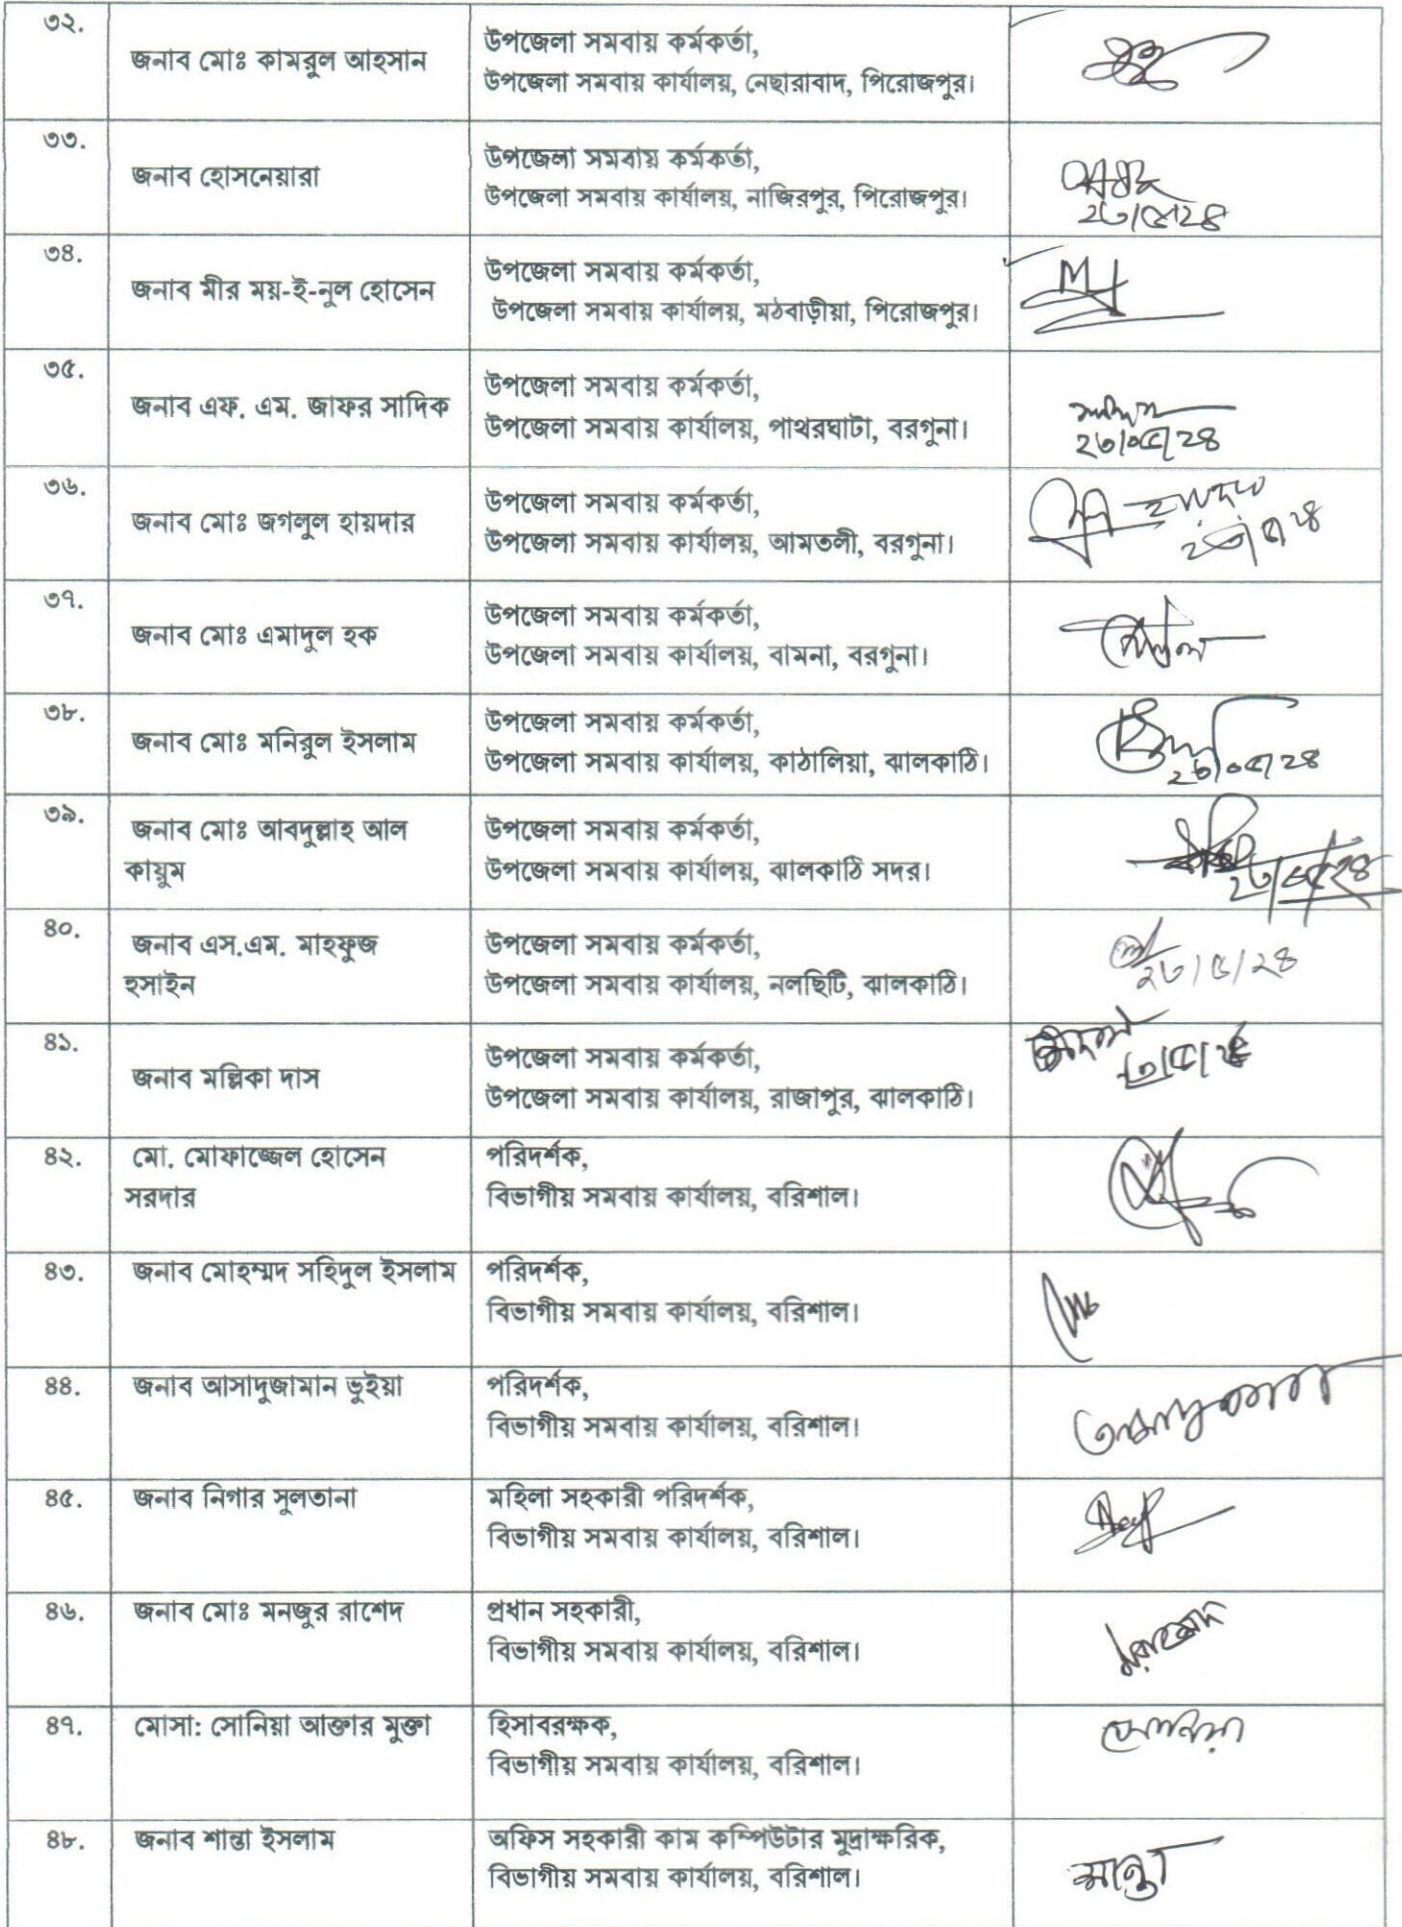 ৩২.
জনাব মোঃ কামরুল আহসান
উপজেলা সমবায় কর্মকর্তা,
উপজেলা সমবায় কার্যালয়, নেছারাবাদ, পিরোজপুর।
৩৩.
জনাব হোসনেয়ারা
উপজেলা সমবায় কর্মকর্তা,
উপজেলা সমবায় কার্যালয়, নাজিরপুর, পিরোজপুর।
২৩/৫/২৪
৩৪.
জনাব মীর ময়-ই-নুল হোসেন
উপজেলা সমবায় কর্মকর্তা,
উপজেলা সমবায় কার্যালয়, মঠবাড়ীয়া, পিরোজপুর।
৩৫.
জনাব এফ. এম. জাফর সাদিক
উপজেলা সমবায় কর্মকর্তা,
উপজেলা সমবায় কার্যালয়, পাথরঘাটা, বরগুনা।
২৩/০৫/২৪
৩৬.
জনাব মোঃ জগলুল হায়দার
উপজেলা সমবায় কর্মকর্তা,
উপজেলা সমবায় কার্যালয়, আমতলী, বরগুনা।
২৩/৫/২৪
৩৭.
জনাব মোঃ এমাদুল হক
উপজেলা সমবায় কর্মকর্তা,
উপজেলা সমবায় কার্যালয়, বামনা, বরগুনা।
৩৮.
জনাব মোঃ মনিরুল ইসলাম
উপজেলা সমবায় কর্মকর্তা,
উপজেলা সমবায় কার্যালয়, কাঠালিয়া, ঝালকাঠি।
২৩/০৫/২৪
৩৯.
জনাব মোঃ আবদুল্লাহ আল
কায়ুম
উপজেলা সমবায় কর্মকর্তা,
উপজেলা সমবায় কার্যালয়, ঝালকাঠি সদর।
২৩/৫/২৪
৪০.
জনাব এস.এম. মাহফুজ
হুসাইন
উপজেলা সমবায় কর্মকর্তা,
উপজেলা সমবায় কার্যালয়, নলছিটি, ঝালকাঠি।
২৩/৫/২৪
৪১.
জনাব মল্লিকা দাস
উপজেলা সমবায় কর্মকর্তা,
উপজেলা সমবায় কার্যালয়, রাজাপুর, ঝালকাঠি।
৪২.
মো. মোফাজ্জেল হোসেন
সরদার
পরিদর্শক,
বিভাগীয় সমবায় কার্যালয়, বরিশাল।
৪৩.
জনাব মোহম্মদ সহিদুল ইসলাম
পরিদর্শক,
বিভাগীয় সমবায় কার্যালয়, বরিশাল।
৪৪.
জনাব আসাদুজামান ভুইয়া
পরিদর্শক,
বিভাগীয় সমবায় কার্যালয়, বরিশাল।
৪৫.
জনাব নিগার সুলতানা
মহিলা সহকারী পরিদর্শক,
বিভাগীয় সমবায় কার্যালয়, বরিশাল।
৪৬.
জনাব মোঃ মনজুর রাশেদ
প্রধান সহকারী,
বিভাগীয় সমবায় কার্যালয়, বরিশাল।
৪৭.
মোসা: সোনিয়া আক্তার মুক্তা
হিসাবরক্ষক,
বিভাগীয় সমবায় কার্যালয়, বরিশাল।
সোনিয়া
৪৮.
জনাব শান্তা ইসলাম
অফিস সহকারী কাম কম্পিউটার মুদ্রাক্ষরিক,
বিভাগীয় সমবায় কার্যালয়, বরিশাল।
শান্তা